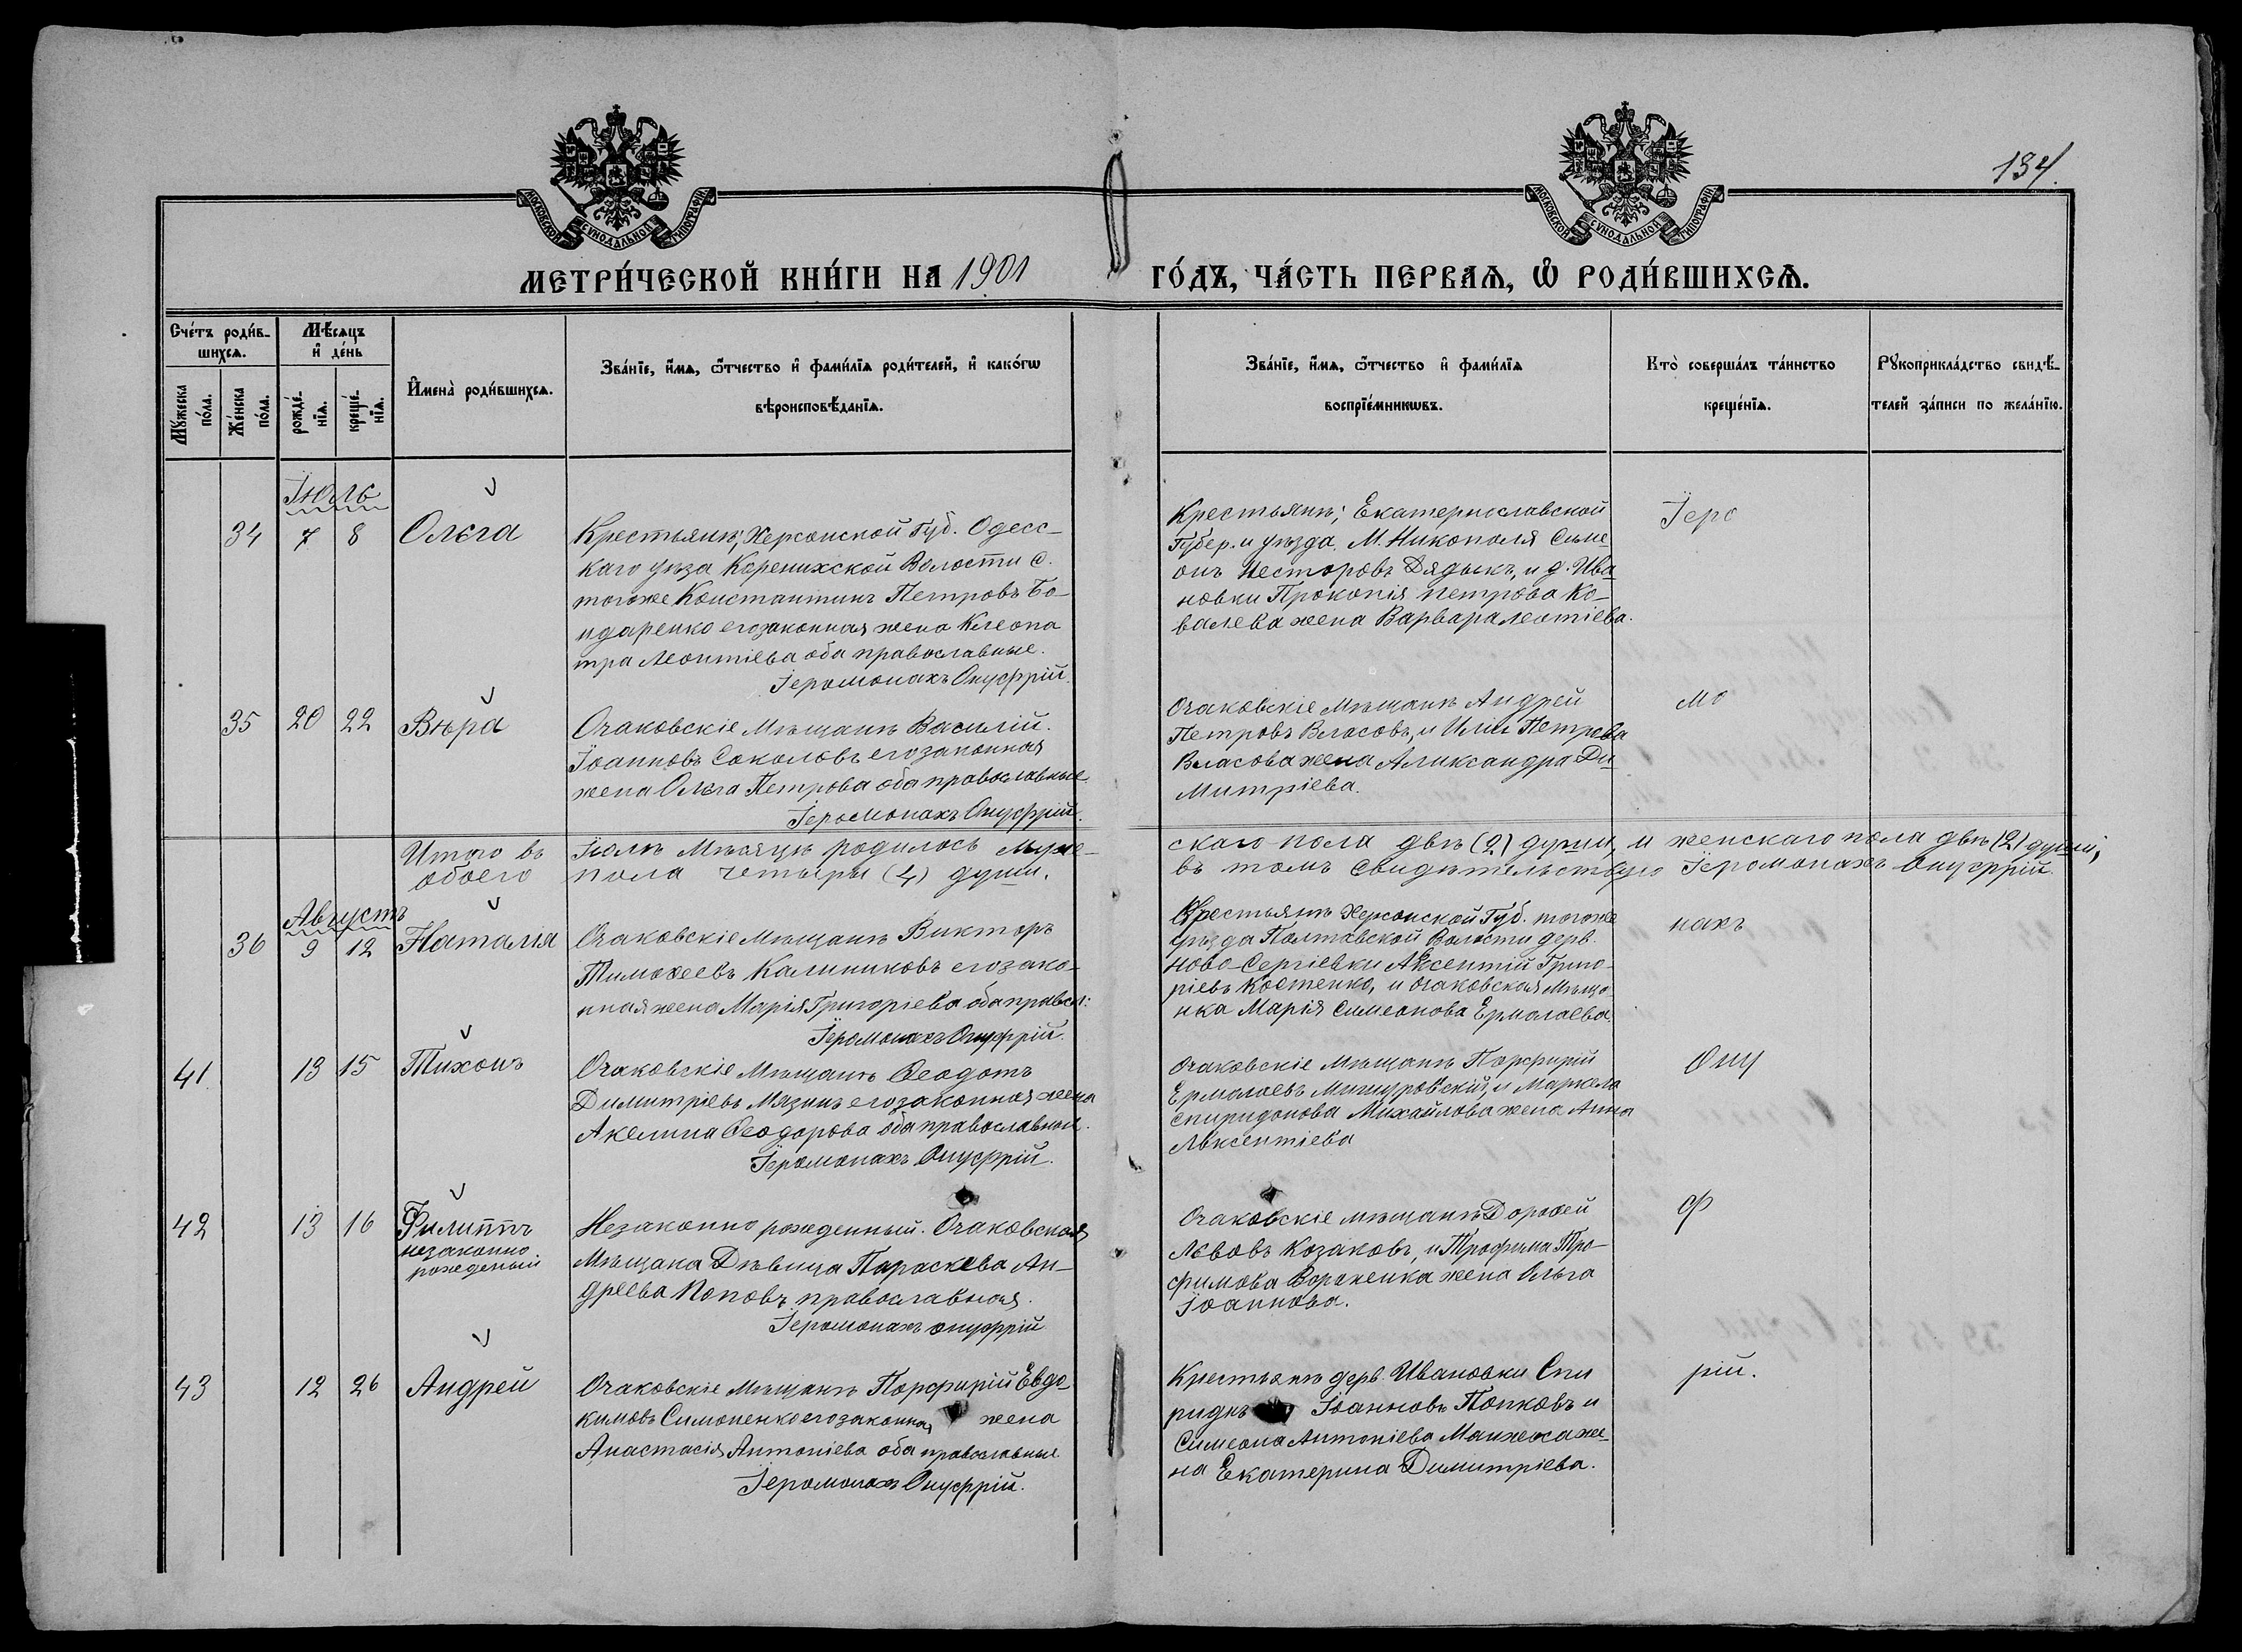 134.
МОСКОВСКОЙ СѴНОДАЛЬНОЙ ТИПОГРАФІИ
МОСКОВСКОЙ СѴНОДАЛЬНОЙ ТИПОГРАФІИ
МЕТРИ́ЧЕСКОЙ КНИ́ГИ НА 1901 ГО́ДЪ, ЧА́СТЬ ПЕРВАѦ, Ѡ҆ РОДИ́ВШИХСѦ.
Сче́тъ роди́в-
шихсѧ.
Мѣ́сѧцъ
и҆ де́нь
Мꙋ́жеска по́ла.
Же́нска по́ла.
рожде́-нїѧ.
креще́-нїѧ.
И҆мена̀ роди́вшихсѧ.
Зва́нїе, и҆́мѧ, ѻ҆́тчество и҆ фами́лїѧ роди́телей, и҆ како́гѡ
вѣроисповѣ́данїѧ.
Зва́нїе, и҆́мѧ, ѻ҆́тчество и҆ фами́лїѧ
воспрїе́мникѡвъ.
Кто̀ соверша́лъ та́инство
креще́нїѧ.
Рꙋкоприкла́дство свидѣ́-
телей за́писи по жела́нїю.
Іюль
34 7 8 Ольга
Крестьянѣ, Херсонской Губ. Одесс-
каго уѣза Коренихской Волости с.
тогоже Константинъ Петровъ Бо-
ндаренко егозаконная жена Клеопа
тра Леонтіева оба православные.
Іеромонахъ Онуфрій.
Крестьянѣ; Екатеринославской
Губер. и уѣзда, М. Никополя Симе
онъ Несторовъ Дядыкъ, и д. Ива
новки Прокопія Петрова Ко-
валева жена Варвара Леонтіева.
Іеро
35 20 22 Вѣра
Очаковскіе Мѣщанѣ Василій
Іоанновъ Соколовъ егозаконная
жена Ольга Петрова оба православные
Іеромонахъ Онуфрій.
Очаковскіе Мѣщанѣ Андрей
Петровъ Власовъ, и Иліи Петрова
Власова жена Александра Ди
митріева.
мо
Итого въ Іюлѣ Мѣсяцѣ родилось муже-
скаго пола двѣ (2) души, и женскаго пола двѣ (2) души,
обоего пола четыры (4) души.
въ томъ Свидѣтельствую Іеромонахъ Онуфрій.
Августъ
36 9 12 Наталія
Очаковскіе Мѣщанѣ Викторъ
Тимоѳеевъ Калиниковъ егозако-
нная жена Марія Григоріева оба правосл:
Іеромонахъ Онуфрій.
Крестьянѣ Херсонской Губ. тогоже
уѣзда Полтавской Волости дерв.
Ново-Сергіевки Аксентій Григо-
ріевъ Костенко, и Очаковская Мѣща
нка Марія Симеонова Ермолаева.
нахъ
41. 13 15 Тихонъ
Очаковскіе Мѣщанѣ Ѳеодотъ
Димитріевъ Мязинъ егозаконная жена
Акелина Ѳеодорова оба православные.
Іеромонахъ Онуфрій.
Очаковскіе Мѣщанѣ Порфирій
Ермолаевъ Мишуровскій, и Маркела
Спиридонова Михайлова жена Анна
Авксентіева
Ону
42 13 16 Филиппъ
незаконно
рожденый
Незаконно рожденный. Очаковская
Мѣщанка Дѣвица Параскева Ан-
дреева Поповъ православная.
Іеромонахъ Онуфрій
Очаковскіе мѣщанѣ Дороѳей
Львовъ Козаковъ, и Трофима Тро-
фимова Вораненка жена Ольга
Іоаннова.
ф
43 12 26 Андрей
Очаковскіе Мѣщанѣ Порфирій Евдо-
кимовъ Симоненко егозаконная жена
Анастасія Антоніева оба православные.
Іеромонахъ Онуфрій.
Крестьянѣ дерв. Ивановки Спи
риднъ Іоанновъ Попковъ и
Симеона Антоніева Манжоса же-
на Екатерина Димитріева.
рій.